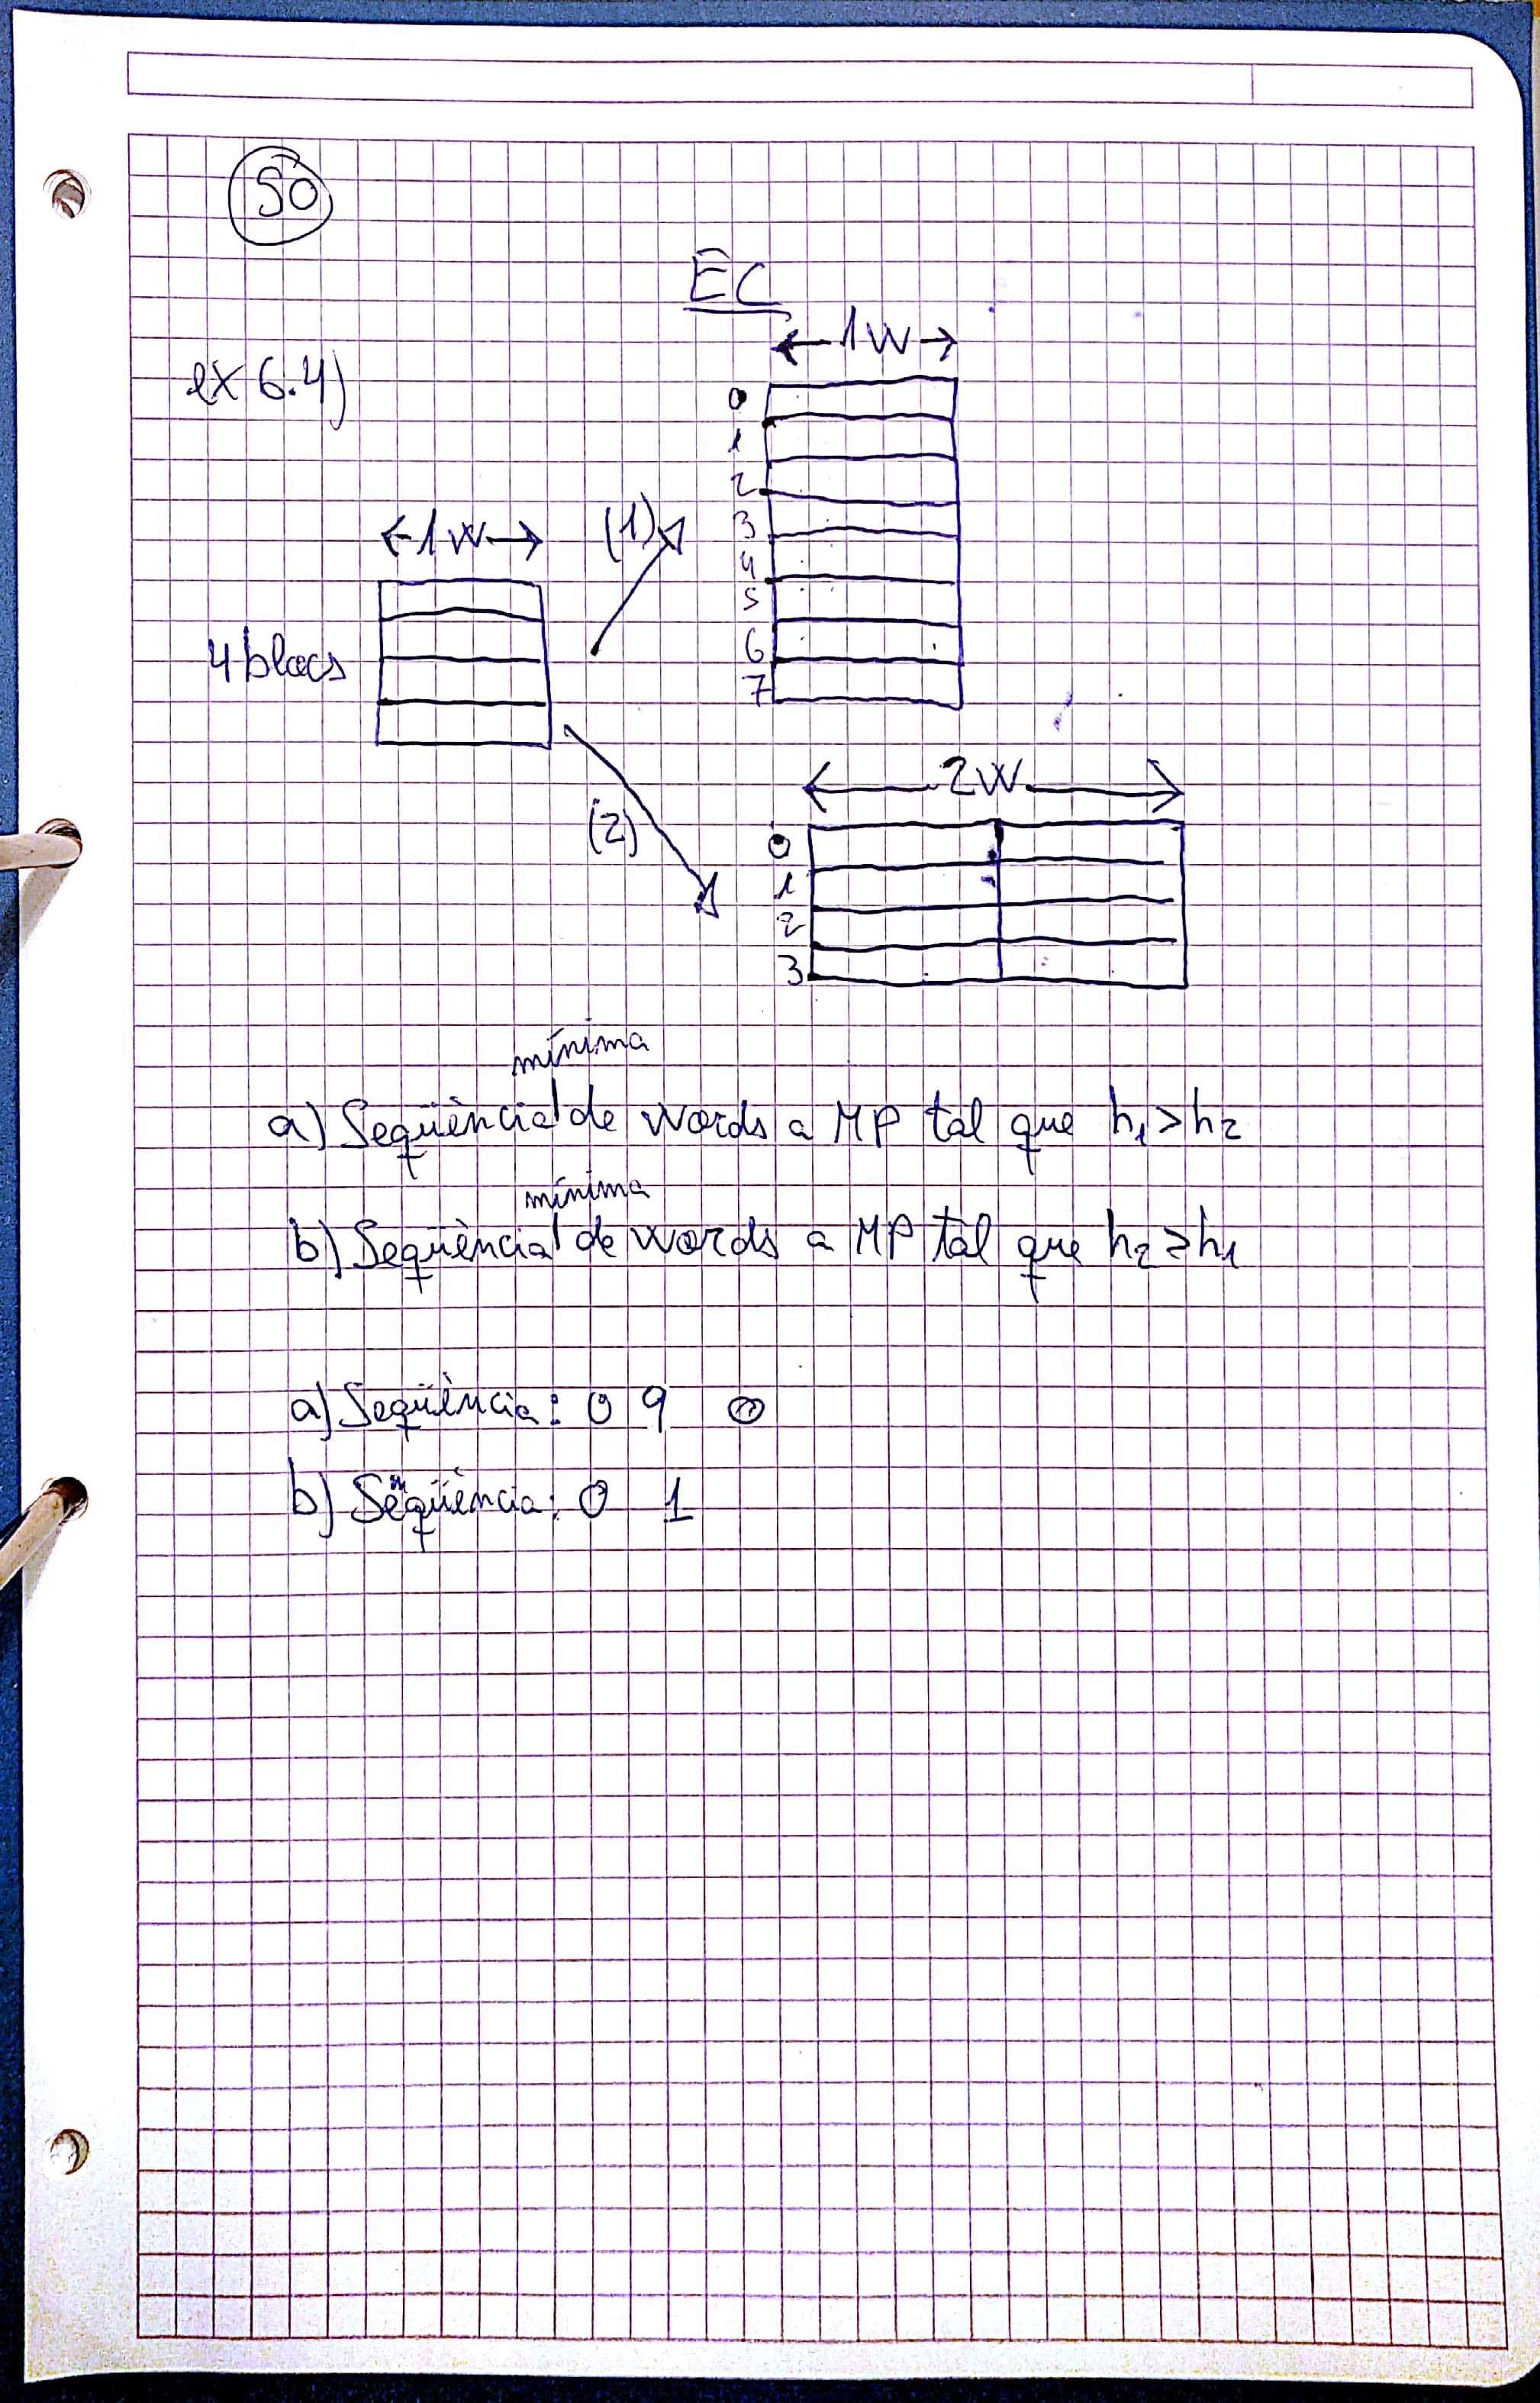 50
EC
ex 6.4)
←1W→
0
1
2
3
4
5
6
7
←1W→
(1)
4 blocs
(2)
←2W→
0
1
2
3
a) Seqüència mínima de words a MP tal que h₁>h₂
b) Seqüència mínima de words a MP tal que h₂>h₁
a) Seqüència: 0 9 0
b) Seqüència: 0 1